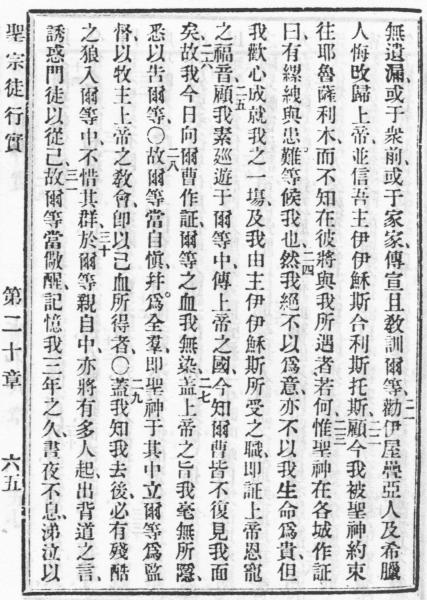 無遺漏、或于衆前、或于家家傳宣且敎訓爾等、二一勸伊屋疊亞人及希臘
人悔攺歸上帝、並信吾主伊伊穌斯合利斯托斯、二二顧今我被聖神約束
往耶魯薩利木、而不知在彼將與我所遇者若何、二三惟聖神在各城作証
曰、有縲絏與患難等候我也、二四然我絕不以爲意、亦不以我生命爲貴、但
我歡心成就我之一塲、及我由主伊伊穌斯所受之職、卽証上帝恩寵
之福音、二五顧我素廵遊于爾等中、傳上帝之國、今知爾曹皆不復見我面
矣、二六故我今日向爾曹作証、爾等之血我無染、二七蓋上帝之旨我毫無所隱、
悉以吿爾等〇二八故爾等當自愼、幷爲全羣、卽聖神于其中立爾等爲監
督、以牧主上帝之敎會、卽以己血所得者〇二九蓋我知我去後、必有殘酷
之狼入爾等中、不惜其群、三十於爾等親自中、亦將有多人起、出背道之言、
誘惑門徒以從己、三一故爾等當儆醒、記憶我三年之久、晝夜不息、涕泣以
聖宗徒行實 第二十章 六五